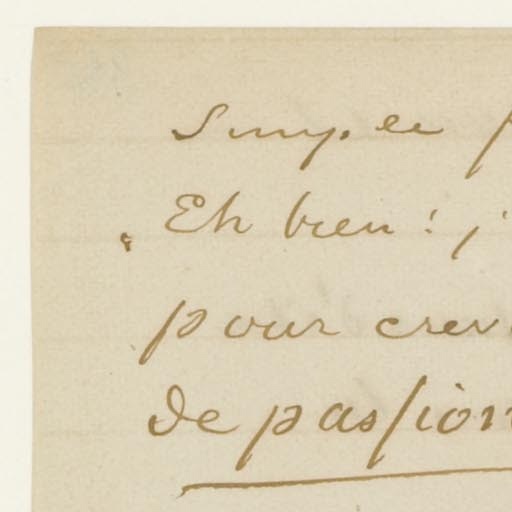 Simple
Eh bien! j'
pour crev
de passion